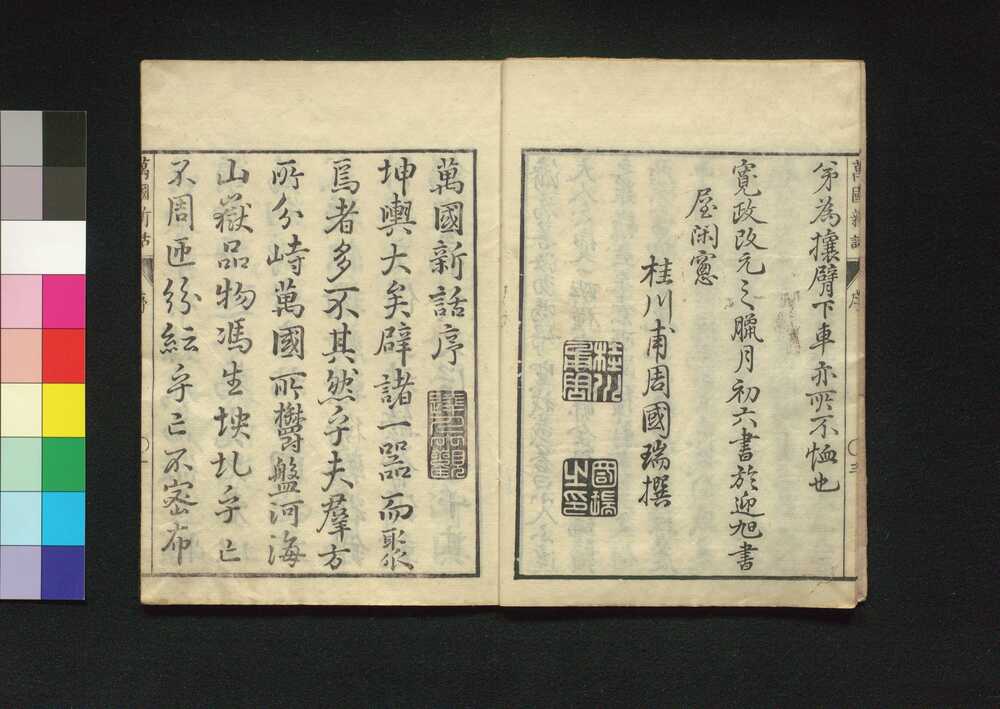 弟為攘臂下車亦所不恤也
寛政改元之臘月初六書於迎旭書
屋閑窓
桂川甫周國瑞撰
桂川
甫周
國瑞
之印
萬國新話
序
三
萬國新話序
坤輿大矣辟諸一器而聚
焉者多不其然乎夫羣方
所分峙萬國所欝盤河海
山嶽品物馮生坱圠乎亡
不周匝紛紜乎亡不密布
萬國新話
序
一